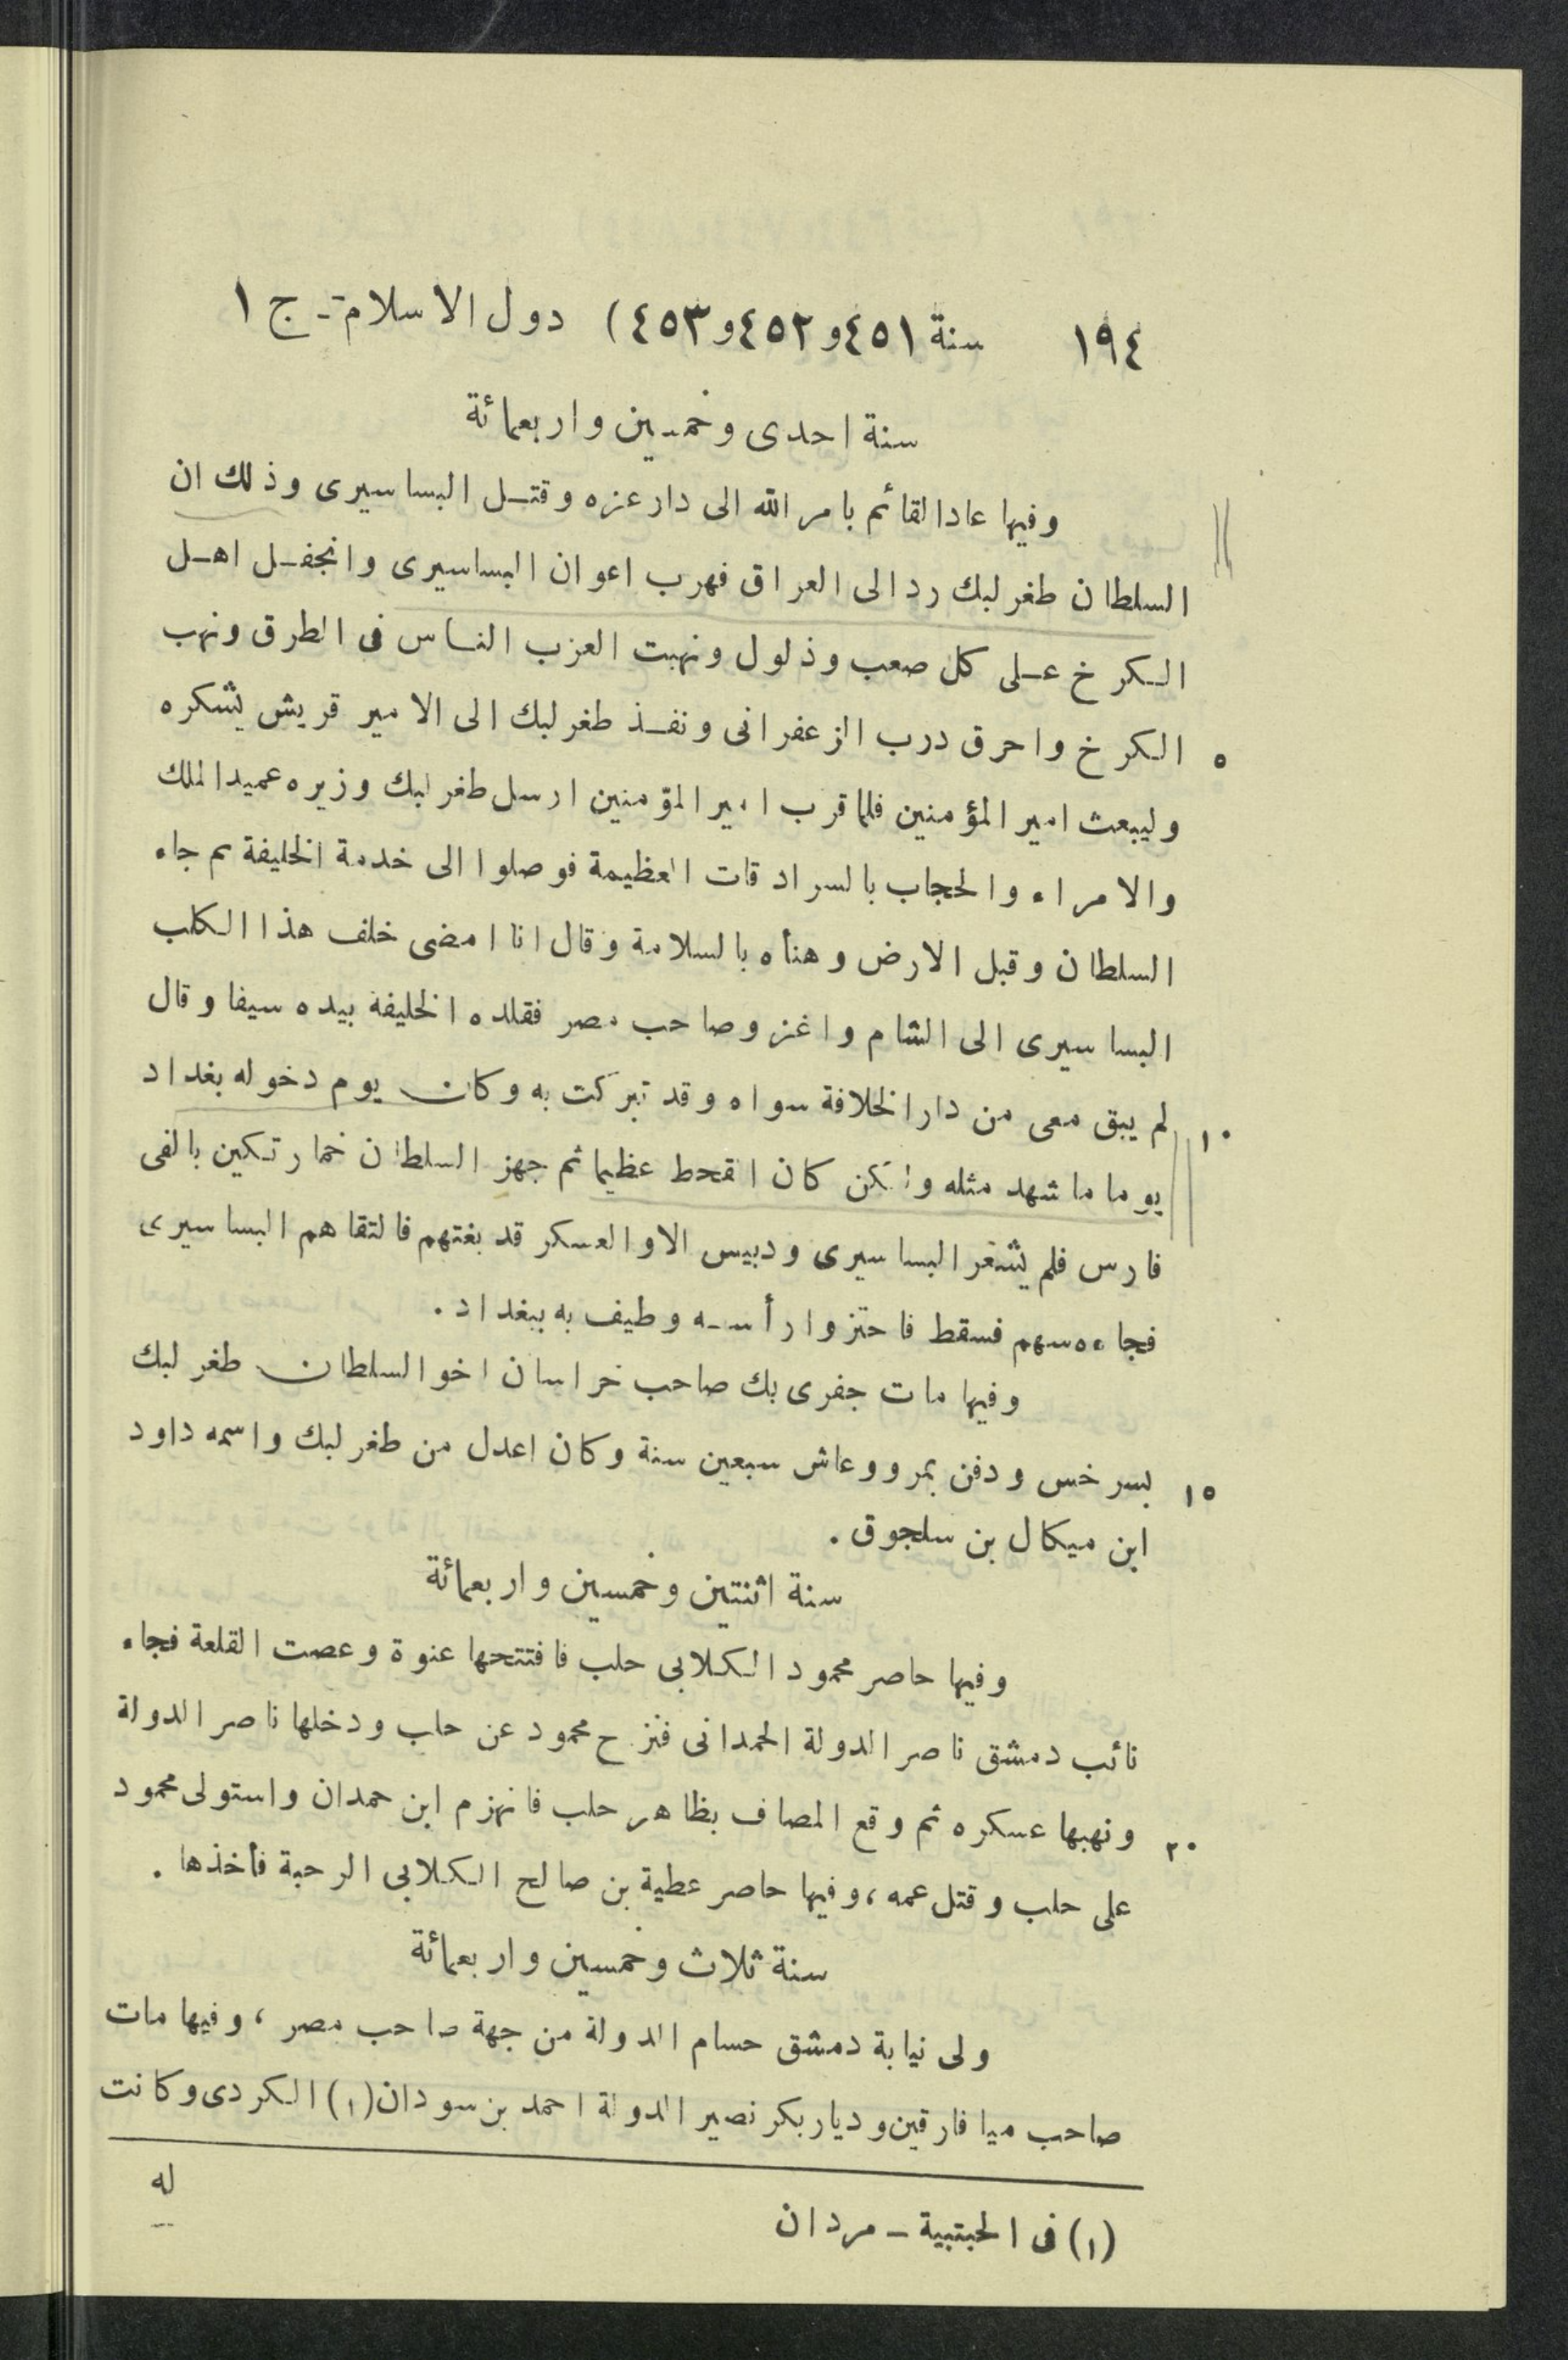 ١٩٤ سنة ٤٥١و٤٥٢و٤٥٣) دول الاسلام - ج ١
سنة احدى وخمسين واربعمائة
وفيها عاد القائم بامر الله الى دار عزه وقتل البساسيرى وذلك ان
السلطان طغرلبك رد الى العراق فهرب اعوان البساسيرى وانجفل اهل
الكرخ على كل صعب وذلول ونهبت العزب الناس فى الطرق ونهب
٥ الكرخ واحرق درب الزعفرانى ونفذ طغرلبك الى الامير قريش يشكره
وليبعث امير المؤمنين فلما قرب امير المؤمنين ارسل طغرلبك وزيره عميد الملك
والامراء والحجاب بالسرادقات العظيمة فوصلوا الى خدمة الخليفة ثم جاء
السلطان وقبل الارض وهنأه بالسلامة وقال انا امضى خلف هذا الكلب
البساسيرى الى الشام واغز وصاحب مصر فقلده الخليفة بيده سيفا وقال
١٠ لم يبق معى من دار الخلافة سواه وقد تبركت به وكان يوم دخوله بغداد
يوما ما شهد مثله ولكن كان القحط عظيما ثم جهز السلطان خمارتكين بالفى
فارس فلم يشعر البساسيرى ودبيس الا والعسكر قد بغتهم فالتقاهم البساسيرى
فجاءه سهم فسقط فاحتزوا رأسه وطيف به ببغداد .
وفيها مات جفرى بك صاحب خراسان اخو السلطان طغرلبك
١٥ بسرخس ودفن بمرو وعاش سبعين سنة وكان اعدل من طغرلبك واسمه داود
ابن ميكال بن سلجوق .
سنة اثنتين وخمسين واربعمائة
وفيها حاصر محمود الكلابى حلب فافتتحها عنوة وعصت القلعة فجاء
نائب دمشق ناصر الدولة الحمدانى فنزح محمود عن حلب ودخلها ناصر الدولة
٢٠ ونهبها عسكره ثم وقع المصاف بظاهر حلب فانهزم ابن حمدان واستولى محمود
على حلب وقتل عمه ، وفيها حاصر عطية بن صالح الكلابى الرحبة فأخذها .
سنة ثلاث وخمسين واربعمائة
ولى نيابة دمشق حسام الدولة من جهة صاحب مصر ، وفيها مات
صاحب ميافارقين وديار بكر نصير الدولة احمد بن سودان (١) الكردى وكانت
له
(١) فى الحبتبية - مردان